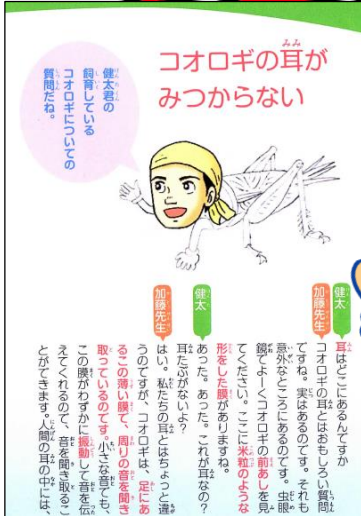 コオロギの耳が
みつからない
健太君の
飼育している
コオロギについての
質問だね。
健太
耳はどこにあるんですか
加藤先生
コオロギの耳とはおもしろい質問
ですね。実はあるのです。それも
意外なところにあるのです。虫眼
鏡でよーくコオロギの前あしを見
てください。ここに米粒のような
形をした膜がありますね。
健太
あった。あった。これが耳なの?
耳たぶがないよ?
加藤先生
はい。私たちの耳とはちょっと違
うのですが、コオロギは、足にあ
るこの薄い膜で、周りの音を聞き
取っているのです。小さな音でも、
この膜がわずかに振動して音を伝
えてくれるので、音を聞き取るこ
とができます。人間の耳の中には、